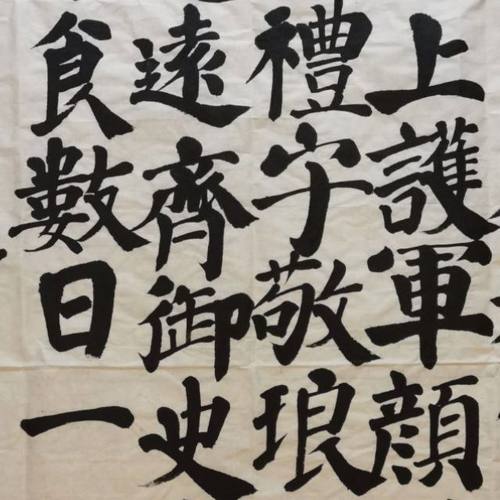 上護軍顏
禮字敬琅
遠齊御史
食數日一